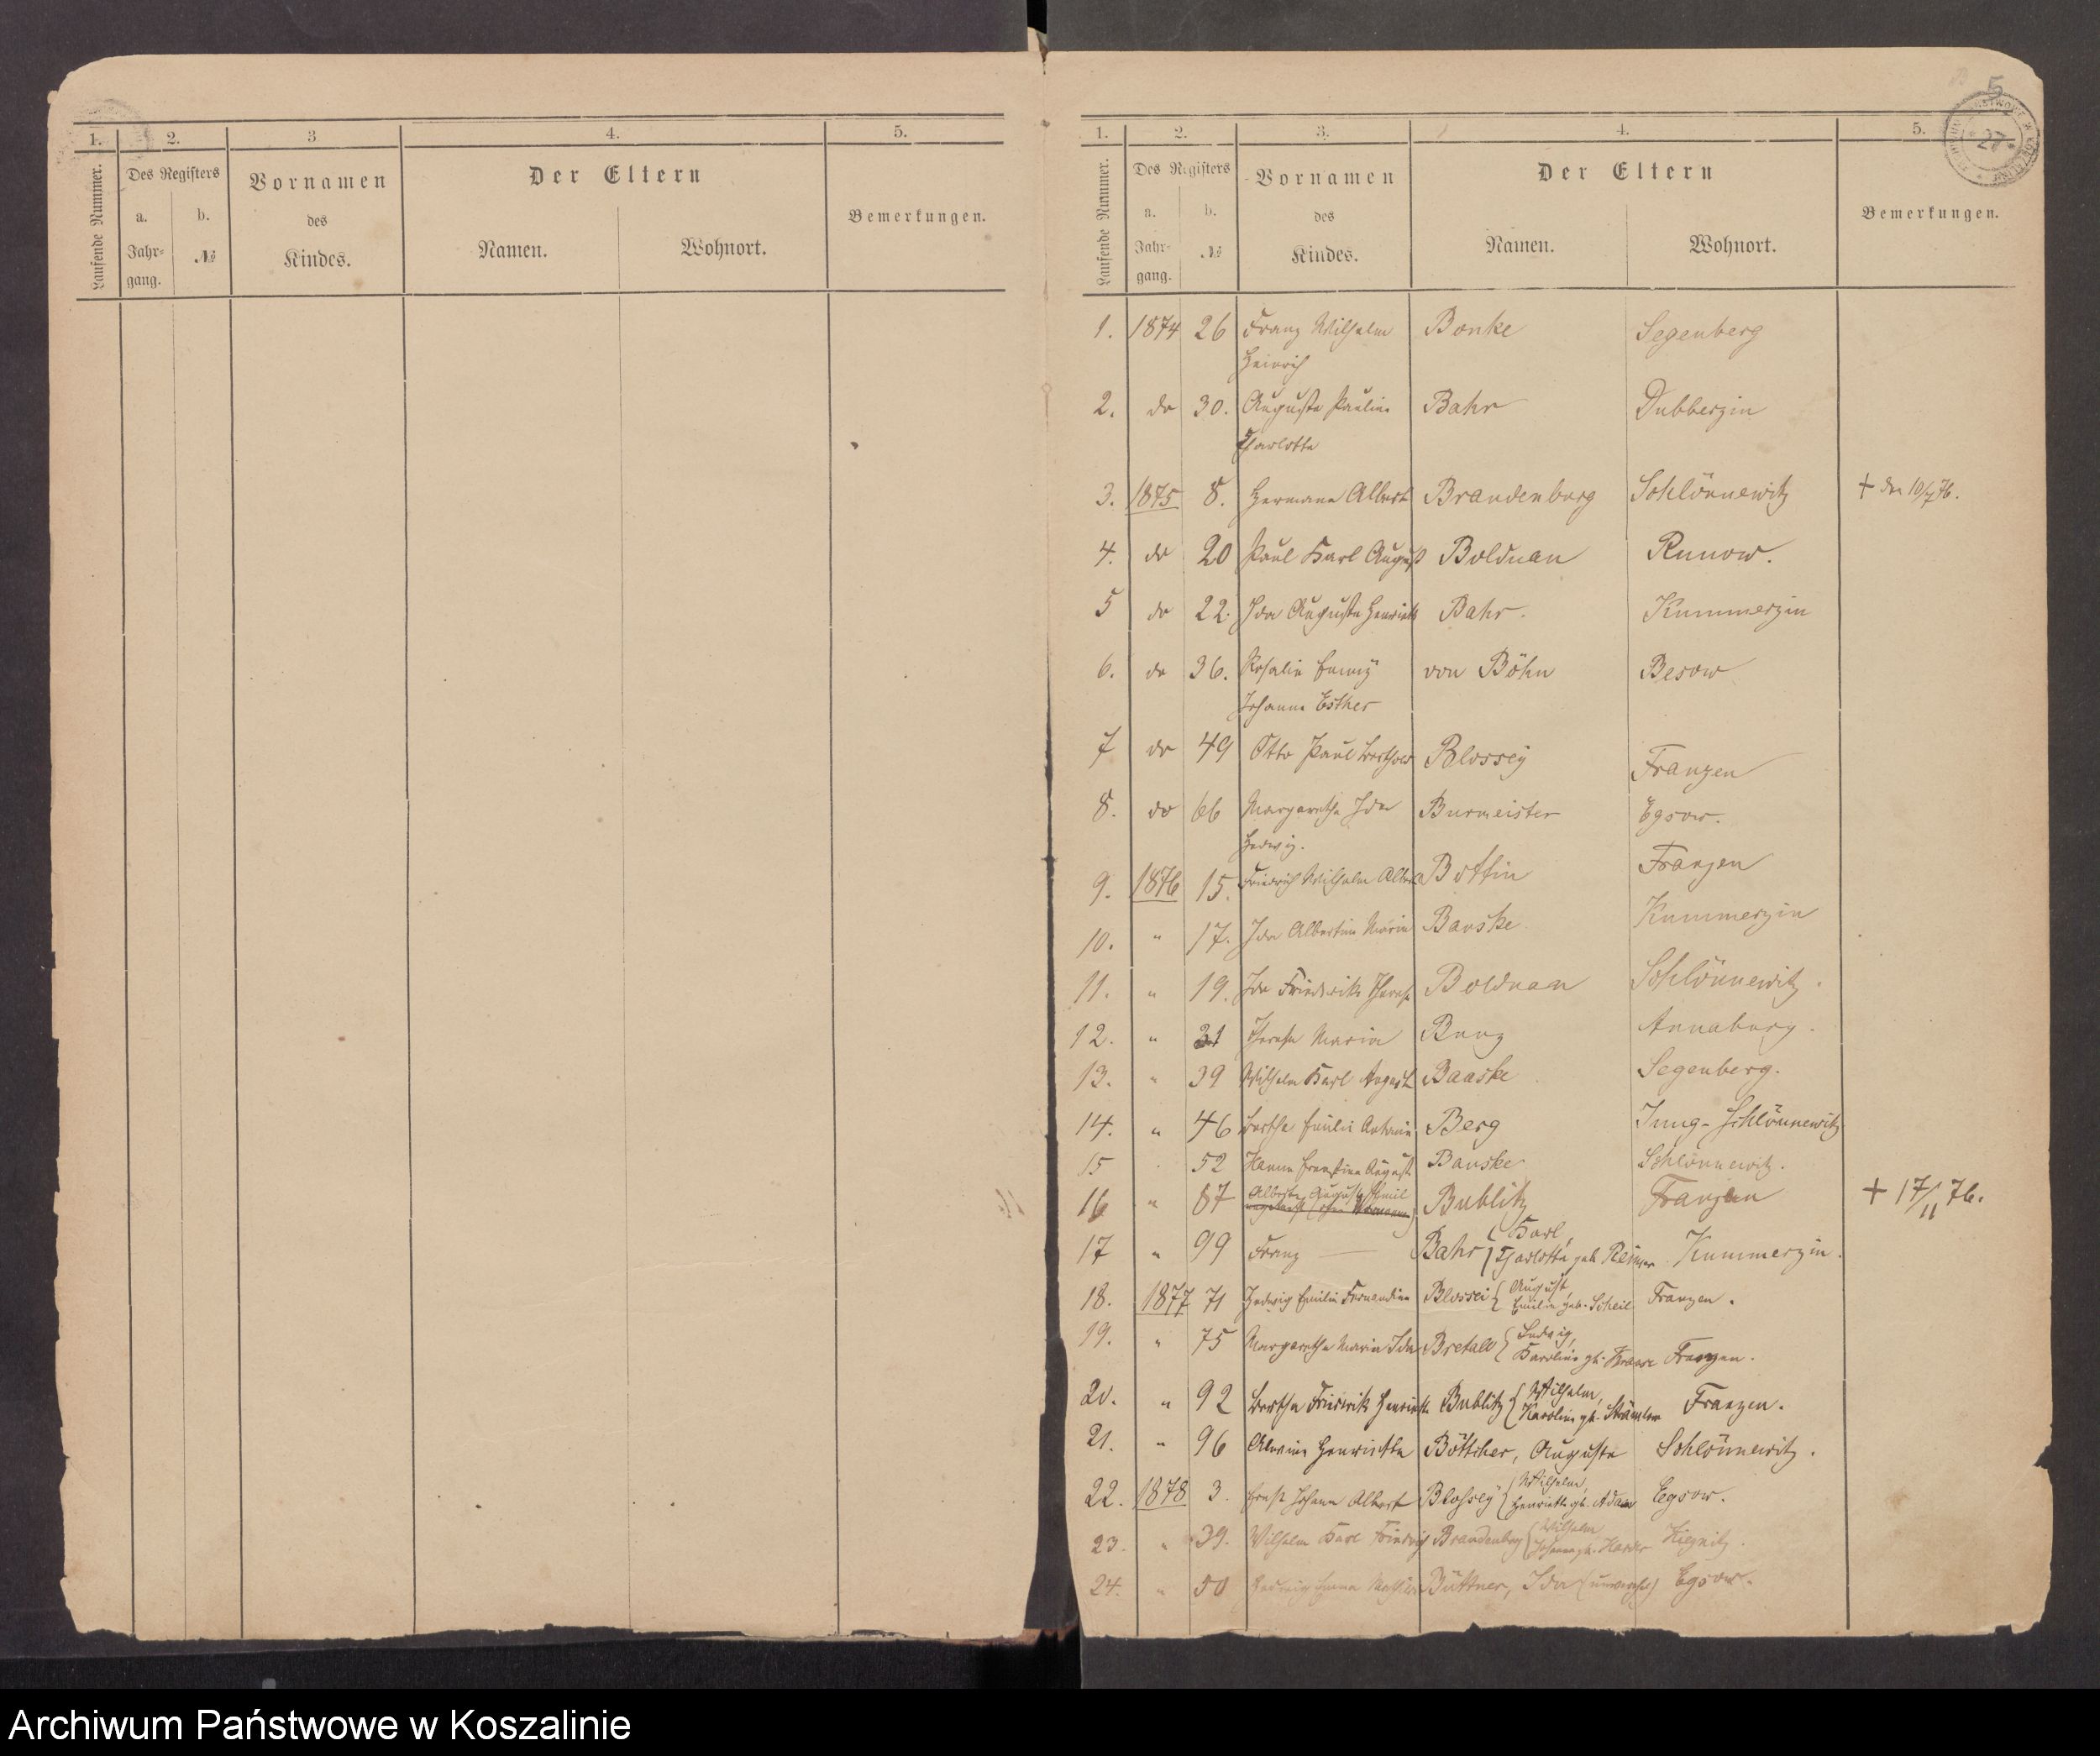 1. 2. 3 4. 5.
Laufende Nummer. Des Registers Vornamen Der Eltern Bemerkungen.
a. b. des
Jahr- № Kindes. Namen. Wohnort.
gang.
5
1. 2. 3. 4. 5.
27
Laufende Nummer. Des Registers Vornamen Der Eltern Bemerkungen.
a. b. des
Jahr- № Kindes. Namen. Wohnort.
gang.
1. 1874 26 Franz Wilhelm Bonke Segenberg
Heinrich
2. do 30. Auguste Pauline Bahr Dubberzin
Charlotte
3. 1875 8. Hermann Albert Brandenburg Schlönnewitz + den 10/7 76.
4. do 20 Paul Karl August Bolduan Runow.
5 do 22. Ida Auguste Henriette Bahr. Kummerzin
6. do 36. Rosalie Fanny von Böhn Besow
Johanna Esther
7 do 49 Otto Paul Berthold Blossey Franzen
8. do 66 Margarethe Ida Burmeister Egsow.
Hedwig.
9. 1876 15. Friedrich Wilhelm Albert Bottin Franzen
10. " 17. Ida Albertine Marie Banske Kummerzin
11. " 19. Ida Friederike Therese Bolduan Schlönnewitz.
12. " 31 Therese Marie Bunz Annaburg.
13. " 39 Wilhelm Karl August Baaske Segenberg.
14. " 46 Bertha Emilie Antonie Berg Jung-Schlönnewitz
15 52 Ernestine August Banske Schlönnewitz.
16 " 87 Albert August Emil Bublitz Franzen + 17/11 76.
17 " 99 Franz — Bahr { Karl, Charlotte geb. Kummerzin.
18. 1877 71 Hedwig Emilie Fernandine Blossei { August, Emilie geb. Scheil Franzen.
19. " 75 Margarethe Marie Ida Bretall { Ludwig, Karoline gb. Krause Franzen.
20. " 92 Bertha Friedrike Henriette Bublitz { Wilhelm, Karoline gb. Franzen.
21. " 96 Alwine Henriette Böttcher, Auguste Schlönnewitz.
22. 1878 3. Ernst Johann Albert Blossey { Wilhelm, Henriette gb. Adam Egsow.
23. " 39. Wilhelm Karl Friedrich Brandenburg { Wilhelm Johanna gb. Harder
24. " 50 Hedwig Emma Büttner, Ida (unverehel) Egsow.
Archiwum Państwowe w Koszalinie